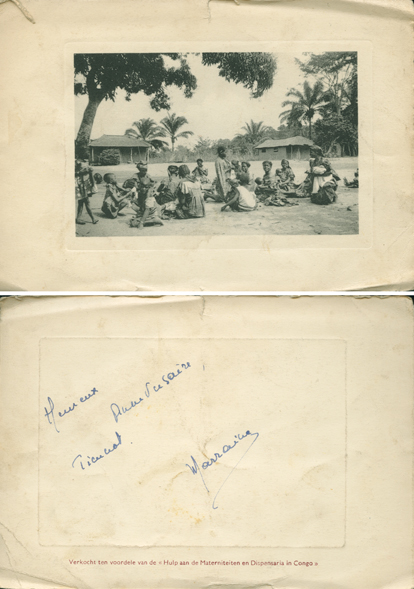 Heureux Anniversaire
Marraine
Verkocht ten voordele van de « Hulp aan de Materniteiten en Dispensaria in Congo »